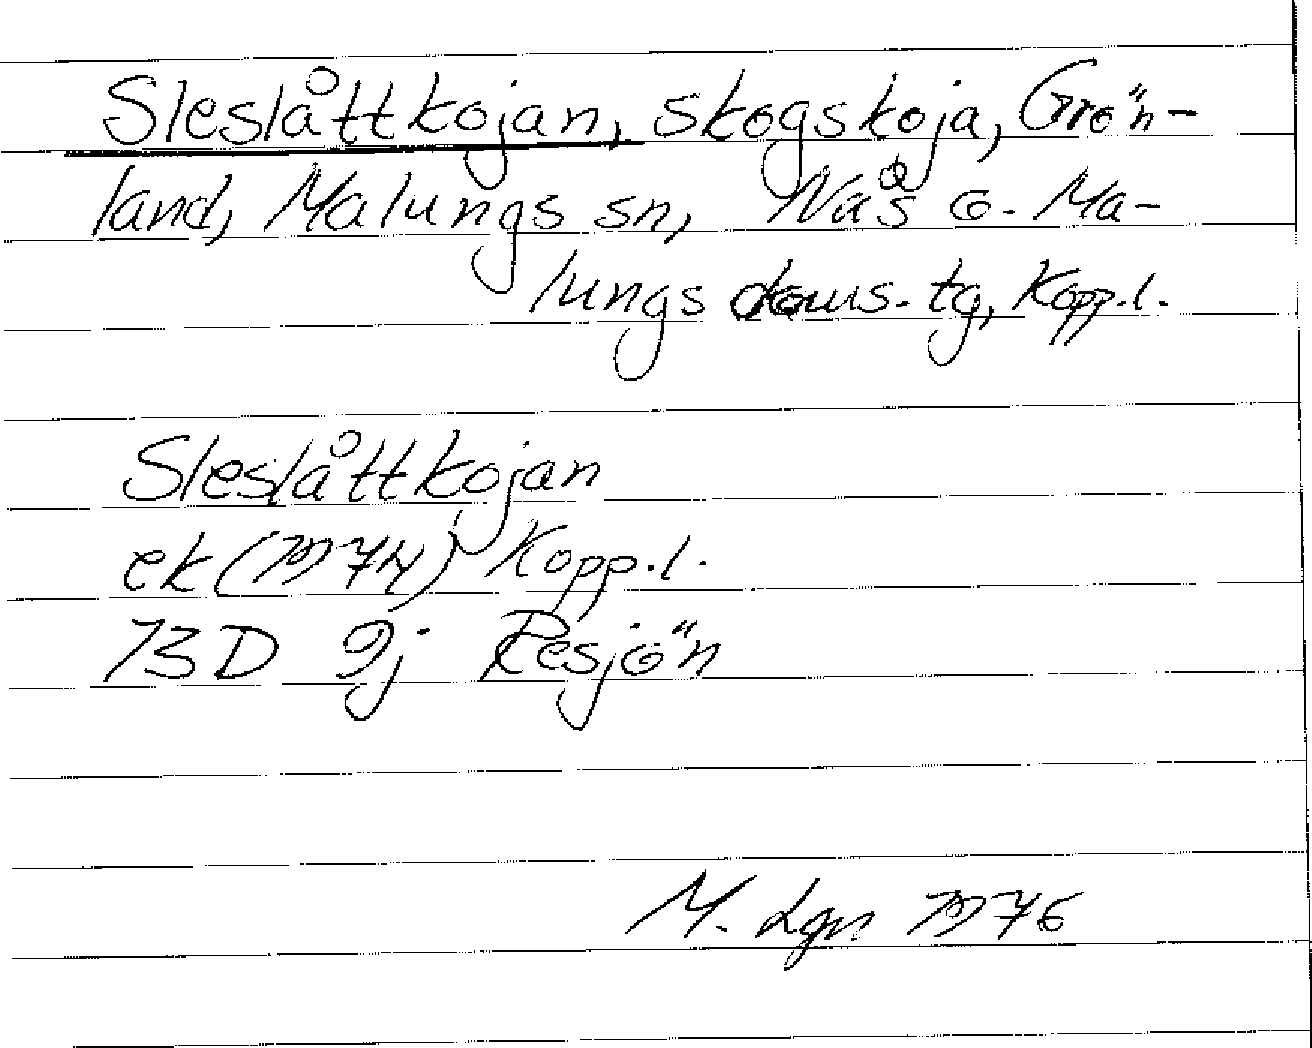 Sleslåttkojan, skogskoja, Grön-
land, Malungs sn, Nås o. Ma-
lungs doms. tg, Kopp.l.
Sleslåttkojan
ek (1974) Kopp.l.
13D 9j Resjön
M. Lgn 1976